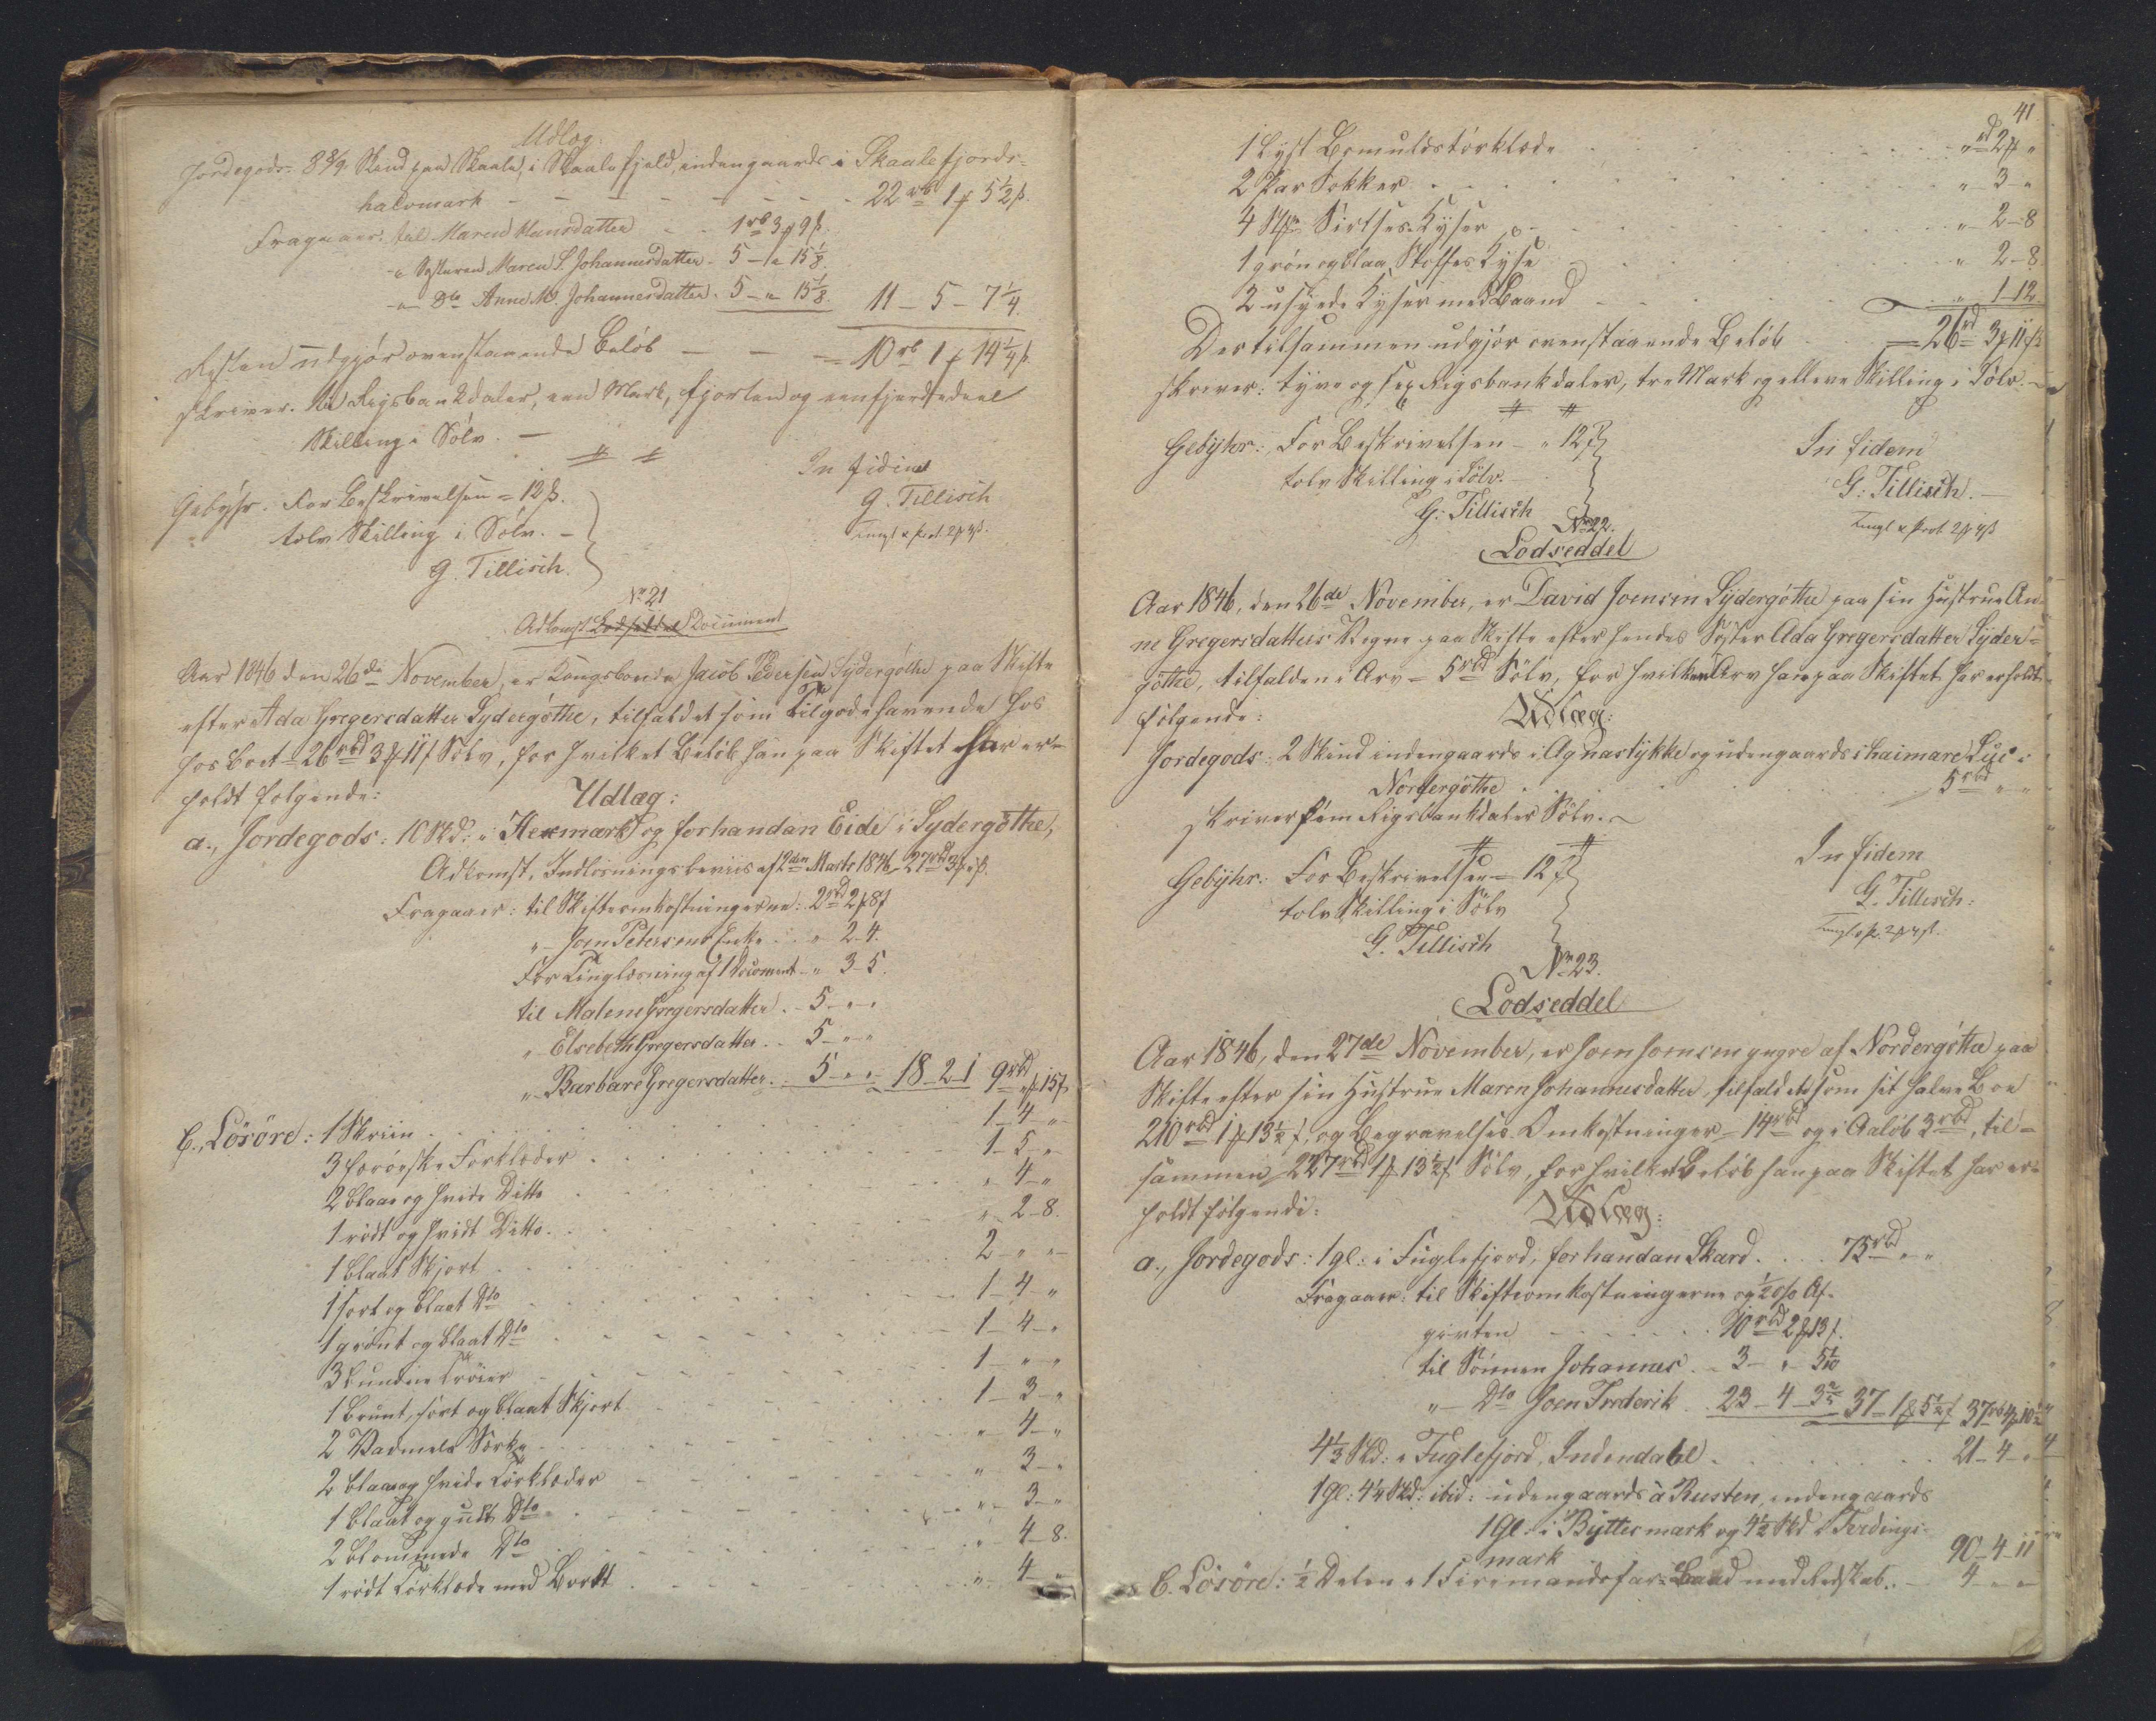 Udlæg.
Jordegods: 8 8/9 Skind paa Skaale, i Skaalefjeld, indengaards i Skaalefjords-
halvmark - - - - - - 22 rb 1 ₰ 5 1/2 ß.
Fragaaer: til Maren Hansdatter - - 1 rb 3 ₰ 9 ß.
-"- Søsteren Maren S. Johannesdatter. 5 - " 15 1/8.
-"- Dto Anne M. Johannesdatter. 5 - " - 15 1/8. 11 - 5 - 7 1/4.
Resten udgjør ovenstaaende Beløb - - - = 10 rb 1 ₰ 14 1/4 ß.
skriver: Ti Rigsbankdaler, een Mark, fjorten og eenfjerdedeel
Skilling i Sølv. -
In fidem
G. Tillisch
Gebyhr. For Beskrivelsen = 12 ß.
tolv Skilling i Sølv. -
G. Tillisch.
Tingl & Prot. 2 ₰ 4 ß.
No 21
Adkomst Lodseddel Document
Aar 1846 den 26de November, er Kongsbonde Jacob Pedersen Sydergøthe paa Skifte
efter Ada Gregersdatter Sydergøthe, tilfaldet som Tilgodehavende hos
hos Boet = 26 rbd 3 ₰ 11 ß Sølv, for hvilket Beløb han paa Skiftet har er-
holdt følgende: Udlæg:
a., Jordegods: 10 Skd: i Hexmark og forhandan Eide i Sydergøthe,
Adkomst, Indløsningsbeviis af 12den Marts 1846 27 rbd 3 ₰ " ß.
Fragaaer: til Skifteomkostningerne: 2 rbd 2 ₰ 8 ß
"- Joen Petersens Enke . . " 2 - 4.
For Tinglæsning af 1 Document - " 3 - 5.
til Malene Gregersdatter . - 5 - " "
" Elsebeth Gregersdatter . . 5 - " "
"- Barbare Gregersdatter. . 5 - " - 18 - 2 - 1 9 rbd " ₰ 15 ß
b., Løsøre: 1 Skriin . . . 1 - 4 - "
3 færøeske Forklæder . . . 1 - 5 - "
2 blaae og hvide Ditto . . . " 4 - "
1 rødt og hvidt Ditto. . . . " - 2 - 8.
1 blaat Skjort . . . 2 - " "
1 sort og blaat Dto . . . 1 - 4 - "
1 grønt og blaat Dto . . . 1 - 4 - "
3 bundne Trøier . . . 1 - " "
1 bruunt, sort og blaat Skjort . . . 1 - 3 - "
2 Vadmels Særke . . . " 4 - "
2 blaae og hvide Tørklæder . . . " 3 - "
1 blaat og guult Dto . . . " - 3 - "
2 blommede Dto . . . " 4 - 8.
1 rødt Tørklæde med Bordt . . . " 4 - "
41
1 lyst Bomuldstørklæde . . . " rd 2 ₰ "
2 Par Sokker . . . " - 3 - "
4 Stkr. Sirtses Kyser . . . " 2 - 8
1 grøn og blaa Stoffes Kyse . . . " 2 - 8
2 usyede Kyser med Baand . . . " 1 - 12
Der tilsammen udgjør ovenstaaende Beløb = 26 rd 3 ₰ 11 ß
skriver: tyve og sex Rigsbankdaler, tre Mark og elleve Skilling i Sølv. -
Gebyhr: For Beskrivelsen - " 12 ß
tolv Skilling i Sølv. -
G: Tillisch
In fidem
G: Tillisch. -
Tingl & Prot. 2 ₰ 4 ß
No 22.
Lodseddel
Aar 1846, den 26de November, er David Joensen Sydergøthe paa sin Hustrue An-
ne Gregersdatters Vegne paa Skifte efter hendes Søster Ada Gregersdatter Syder-
gøthe, tilfalden i Arv = 5 rbd Sølv, for hvilken Arv han paa Skiftet har erholdt
følgende: Udlæg:
Jordegods: 2 Skind indengaards i Agnastykke og udengaards i haimare Lye i
Nordergøthe . . . 5 rbd " "
skriver fem Rigsbankdaler Sølv. -
Gebyhr: For Beskrivelsen = 12 ß
tolv Skilling i Sølv
G. Tillisch
In fidem
G. Tillisch:
Tingl. & Pr. 2 ₰ 4 ß.
No 23.
Lodseddel
Aar 1846, den 27de November, er Joen Joensen yngre af Nordergøthe paa
Skifte efter sin Hustrue Maren Johannesdatter tilfaldet som sit halve Boe
210 rbd 1 ₰ 13 1/2 ß, og Begravelses Omkostninger = 14 rbd og i Aaløb 3 rbd, til-
sammen 227 rbd 1 ₰ 13 1/2 ß Sølv, for hvilket Beløb han paa Skiftet har er-
holdt følgende: Udlæg:
a., Jordegods: 1 gl: i Fuglefjord, forhandan Skard . . . 75 rbd " "
Fragaaer: til Skifteomkostningerne og 1/2 o/o Af-
giften . . . 10 rbd 2 ₰ 13 ß.
til Sønnen Johannes . . 3 - " - 5 1/10
" - Dto Joen Frederik . . 23 - 4 - 3 2/5 37 - 1 ₰ 5 1/2 ß 37 rb 4 ₰ 10 1/2
4 1/3 Skd: i Fuglefjord, Indendahl . . . 21 - 4 - "
1 Gl: 4 1/2 Skd: ibid: udengaards à Rusten, indengaards
1 Gl: i Byttermark og 4 1/2 Skd i Ferdings-
mark 90 - 4 - 11
b. Løsøre: 1/2 Delen i 1 Firemandsfar-Baad med Redskab. . . 4 - " -